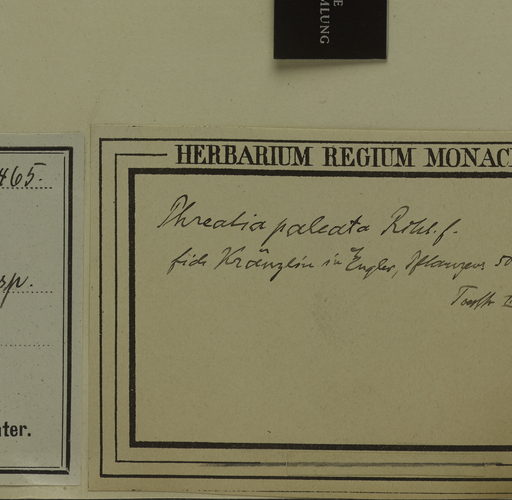 E
MLUNG
465.
sp.
nter.
HERBARIUM REGIUM MONAC
Phreatia paleata Rchb.f.
fide Kränzlin in Engler, Pflanzenr. 50